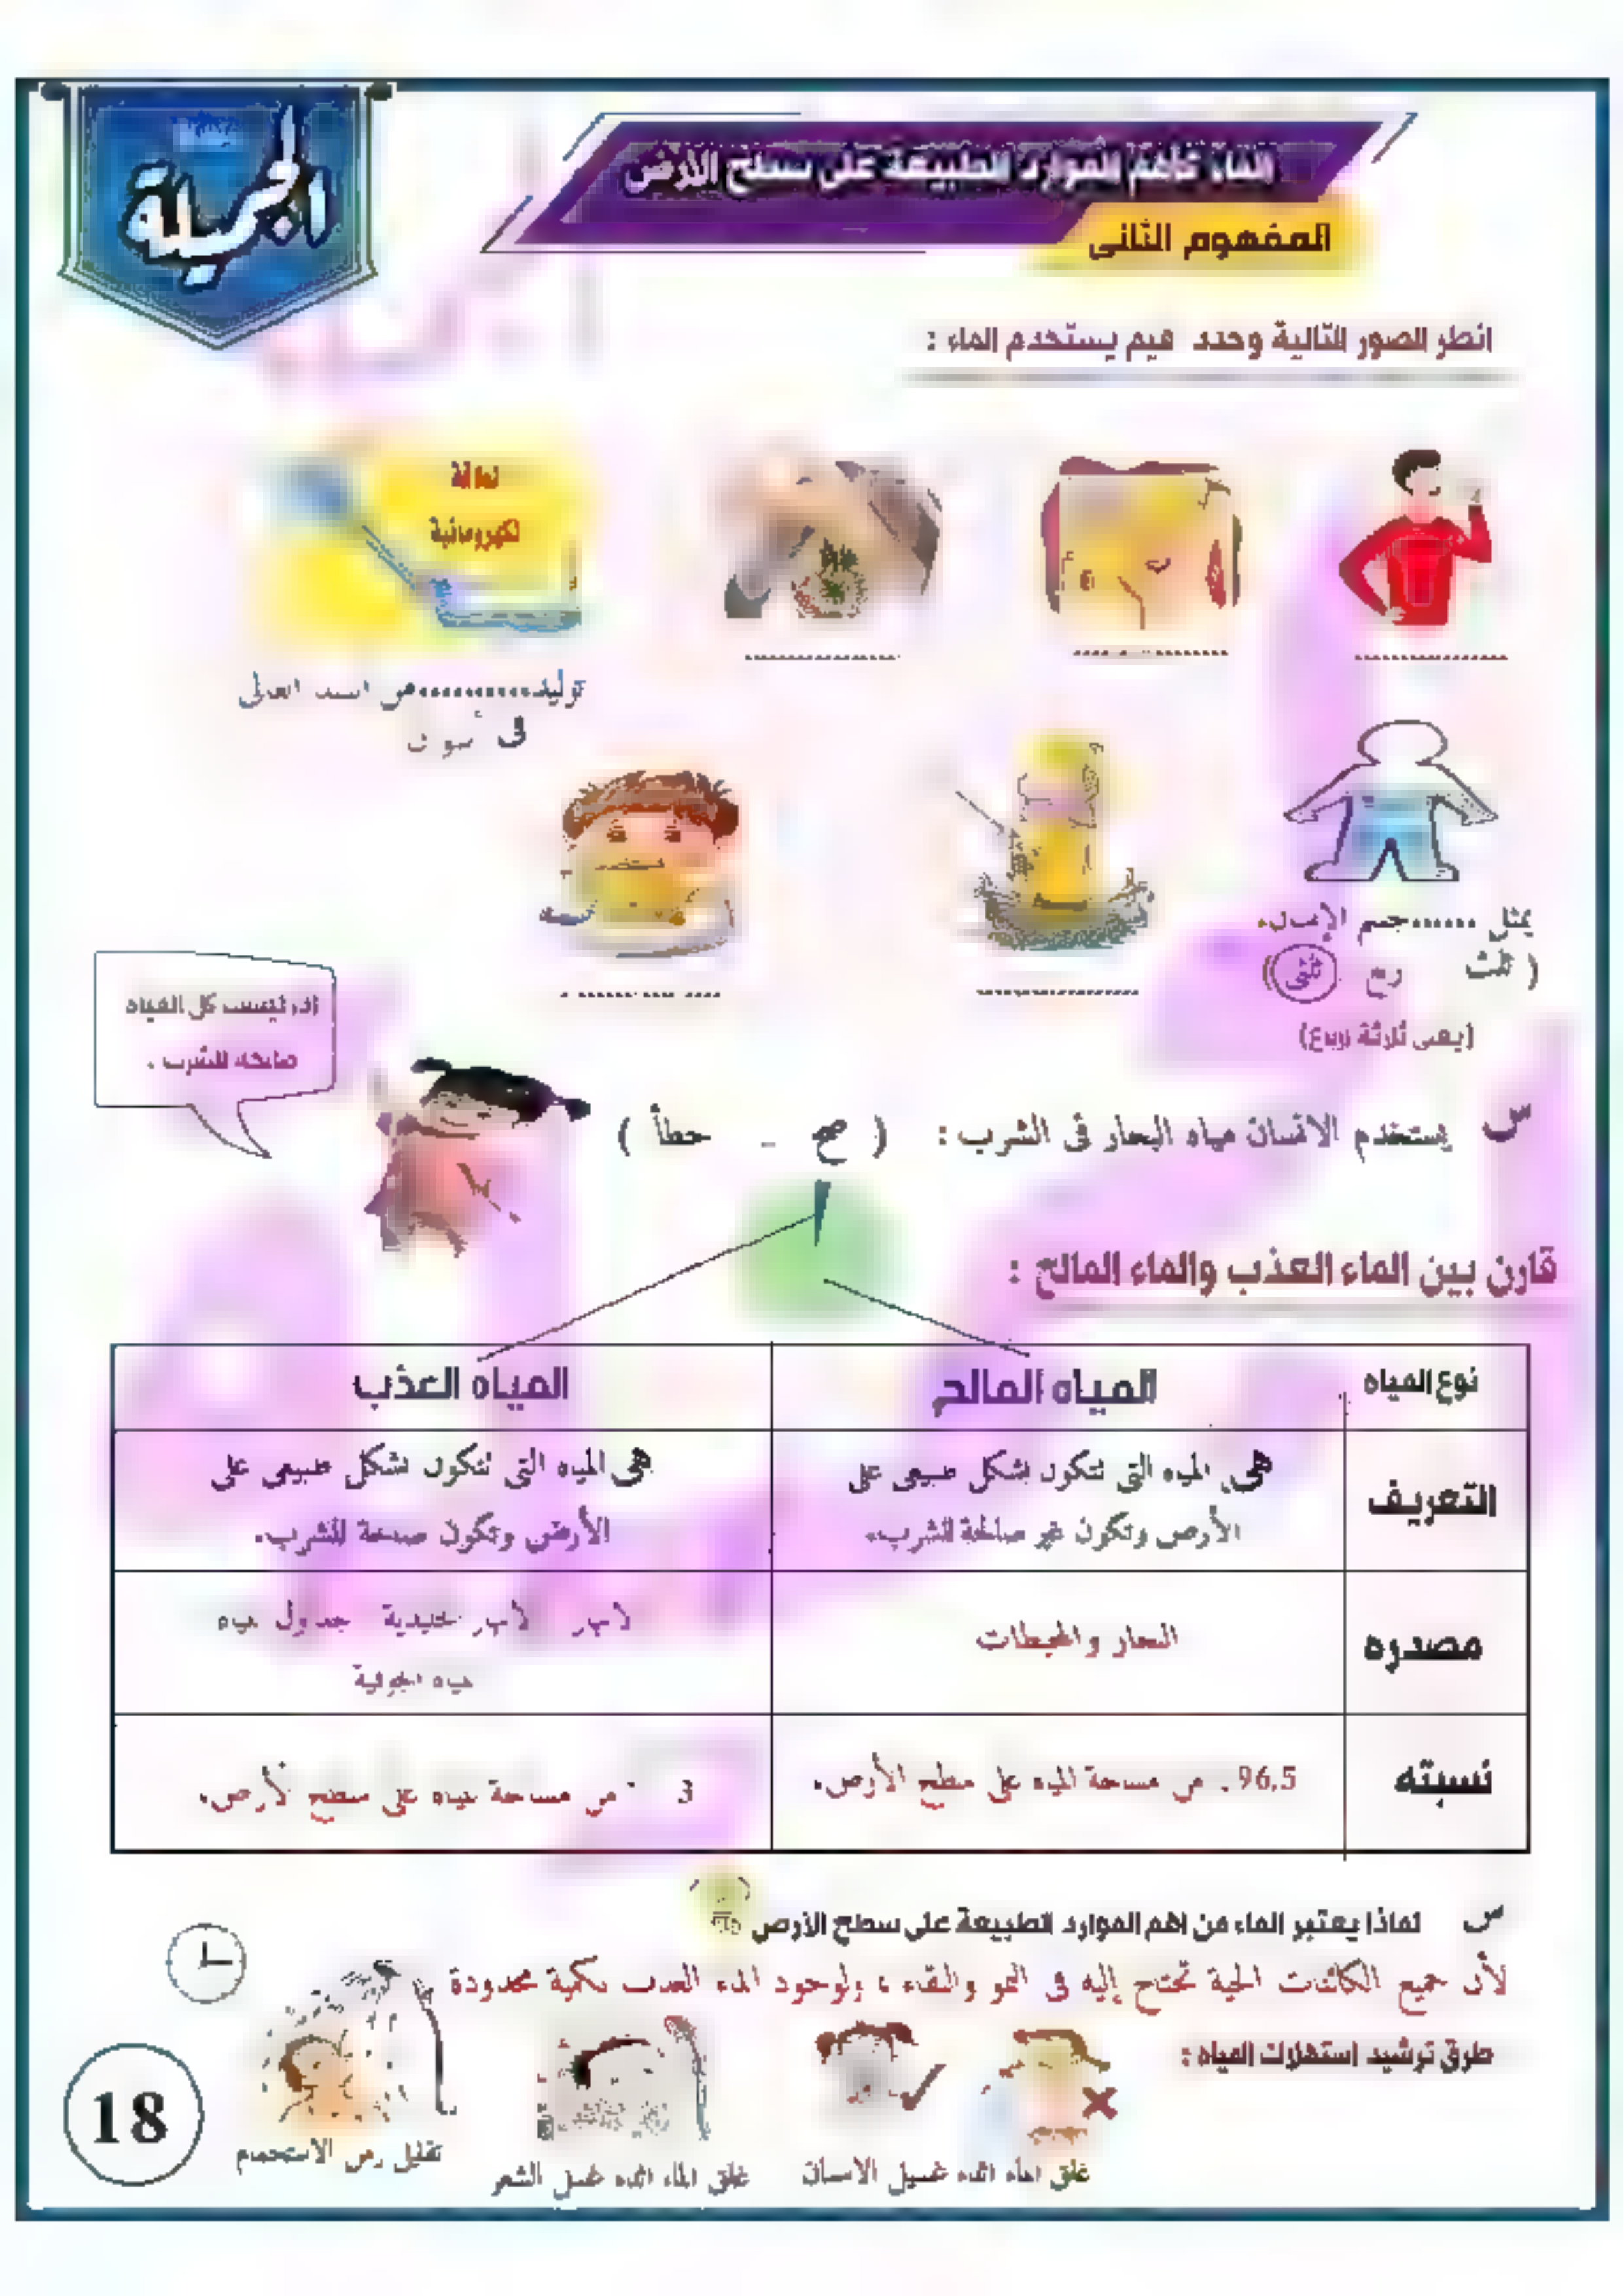 الجميلة
الماء كأهم الموارد الطبيعة على سطح الأرض
المفهوم الثانى
انظر الصور التالية وحدد فيم يستخدم الماء :
طاقة
كهرومائية
توليد..........من السد العالى
فى أسوان
يمثل ......جسم الإنسان.
( ثلث ربع ثلثى )
(يعنى ثلاثة اربع)
س يستخدم الانسان مياه البحار فى الشرب : ( صح - خطأ )
ليست كل المياه
صالحه للشرب .
قارن بين الماء العذب والماء المالح :
نوع المياه المياه المالح المياه العذب
التعريف
هى المياه التى تتكون بشكل طبيعى على
الأرض وتكون غير صالحة للشرب.
هى المياه التى تتكون بشكل طبيعى على
الأرض وتكون صالحة للشرب.
مصدره
البحار والمحيطات
جداول
مياه الجوفية
نسبته
96.5 من مساحة المياه على سطح الأرض.
3 من مساحة مياه على سطح الأرض.
س لماذا يعتبر الماء من اهم الموارد الطبيعة على سطح الارض
لأن جميع الكائنات الحية تحتاج إليه فى النمو والبقاء ، ولوجود الماء العذب بكمية محدودة
طرق ترشيد استهلاك المياه :
غلق الماء اثناء غسيل الاسنان
غلق الماء اثناء غسل الشعر
تقليل زمن الاستحمام
18